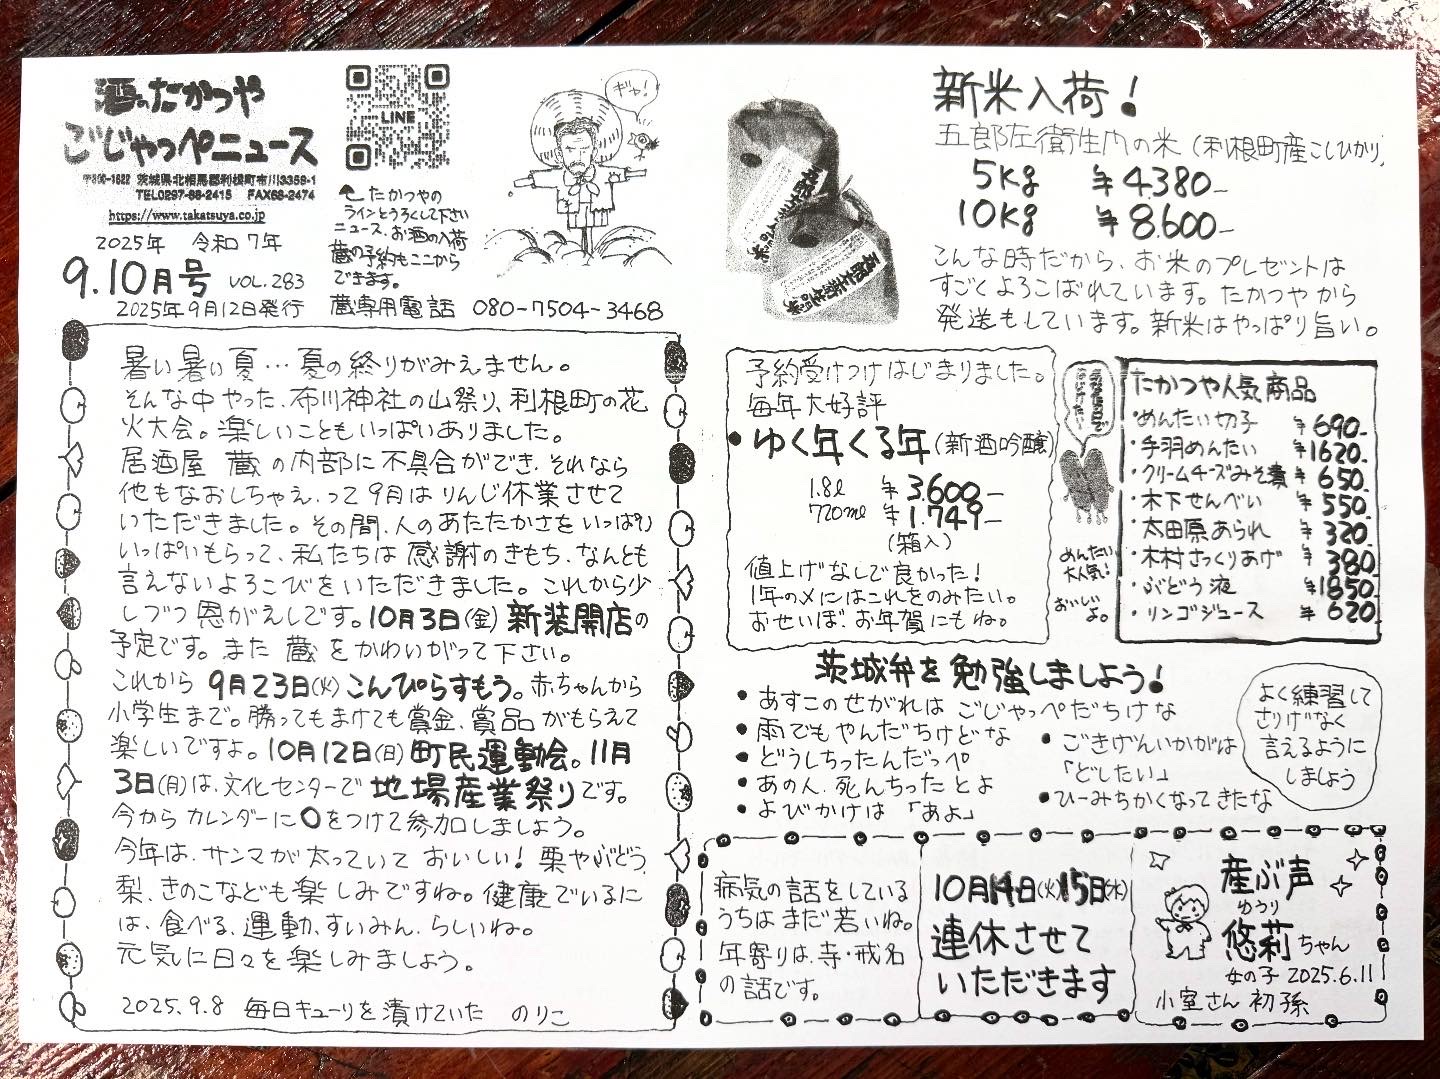 酒のたかつや
ごじゃっぺニュース
〒300-1622 茨城県北相馬郡利根町布川3359-1
TEL0297-68-2415 FAX68-2474
https://www.takatsuya.co.jp
2025年 令和7年
9.10月号 VOL.283
2025年9月12日発行
LINE
たかつやの
ラインとうろくして下さい
ニュース、お酒の入荷
蔵の予約もここから
できます。
蔵専用電話 080-7504-3468
ギャ!
暑い暑い夏…夏の終りがみえません。
そんな中やった、布川神社の山祭り、利根町の花
火大会。楽しいこともいっぱいありました。
居酒屋 蔵の内部に不具合ができ、それなら
他もなおしちゃえ、って9月はりんじ休業させて
いただきました。その間、人のあたたかさをいっぱい
いっぱいもらって、私たちは感謝のきもち、なんとも
言えないよろこびをいただきました。これから少
しづつ恩がえしです。10月3日(金)新装開店の
予定です。また蔵をかわいがって下さい。
これから 9月23日(火)こんぴらすもう。赤ちゃんから
小学生まで。勝ってもまけても賞金、賞品がもらえて
楽しいですよ。10月12日(日)町民運動会。11月
3日(月)は、文化センターで地場産業祭りです。
今からカレンダーに○をつけて参加しましょう。
今年は、サンマが太っていておいしい!栗やぶどう、
梨、きのこなども楽しみですね。健康でいるに
は、食べる、運動、すいみん、らしいね。
元気に日々を楽しみましょう。
2025.9.8 毎日キューリを漬けていた のりこ
新米入荷!
五郎左衛生門の米(利根町産こしひかり)
5Kg ¥4380-
10Kg ¥8.600-
こんな時だから、お米のプレゼントは
すごくよろこばれています。たかつやから
発送もしています。新米はやっぱり旨い。
予約受けつけはじまりました。
毎年大好評
•ゆく年くる年(新酒吟醸)
1.8ℓ ¥3.600-
720ml ¥1.749-
(箱入)
値上げなしで良かった!
1年の〆にはこれをのみたい。
おせいぼ、お年賀にもね。
めんたい
大人気!
おいしい
よ。
たかつや人気商品
・めんたい切子 ¥690-
・手羽めんたい ¥1620-
・クリームチーズみそ漬 ¥650-
・木下せんべい ¥550-
・太田原あられ ¥320-
・木村さっくりあげ ¥380-
・ぶどう液 ¥1850-
・リンゴジュース ¥620-
茨城弁を勉強しましょう!
•あすこのせがれは ごじゃっぺだちけな
•雨でもやんだちけどな
•どうしちったんだっぺ
•あの人、死んちったとよ
•よびかけは「あよ」
•ごきげんいかがは
「どしたい」
•ひーみちかくなってきたな
よく練習して
さりげなく
言えるように
しましょう
病気の話をしている
うちはまだ若いね。
年寄りは、寺・戒名
の話です。
10月14日(火)15日(水)
連休させて
いただきます
産ぶ声
ゆうり
悠莉ちゃん
女の子 2025.6.11
小室さん 初孫